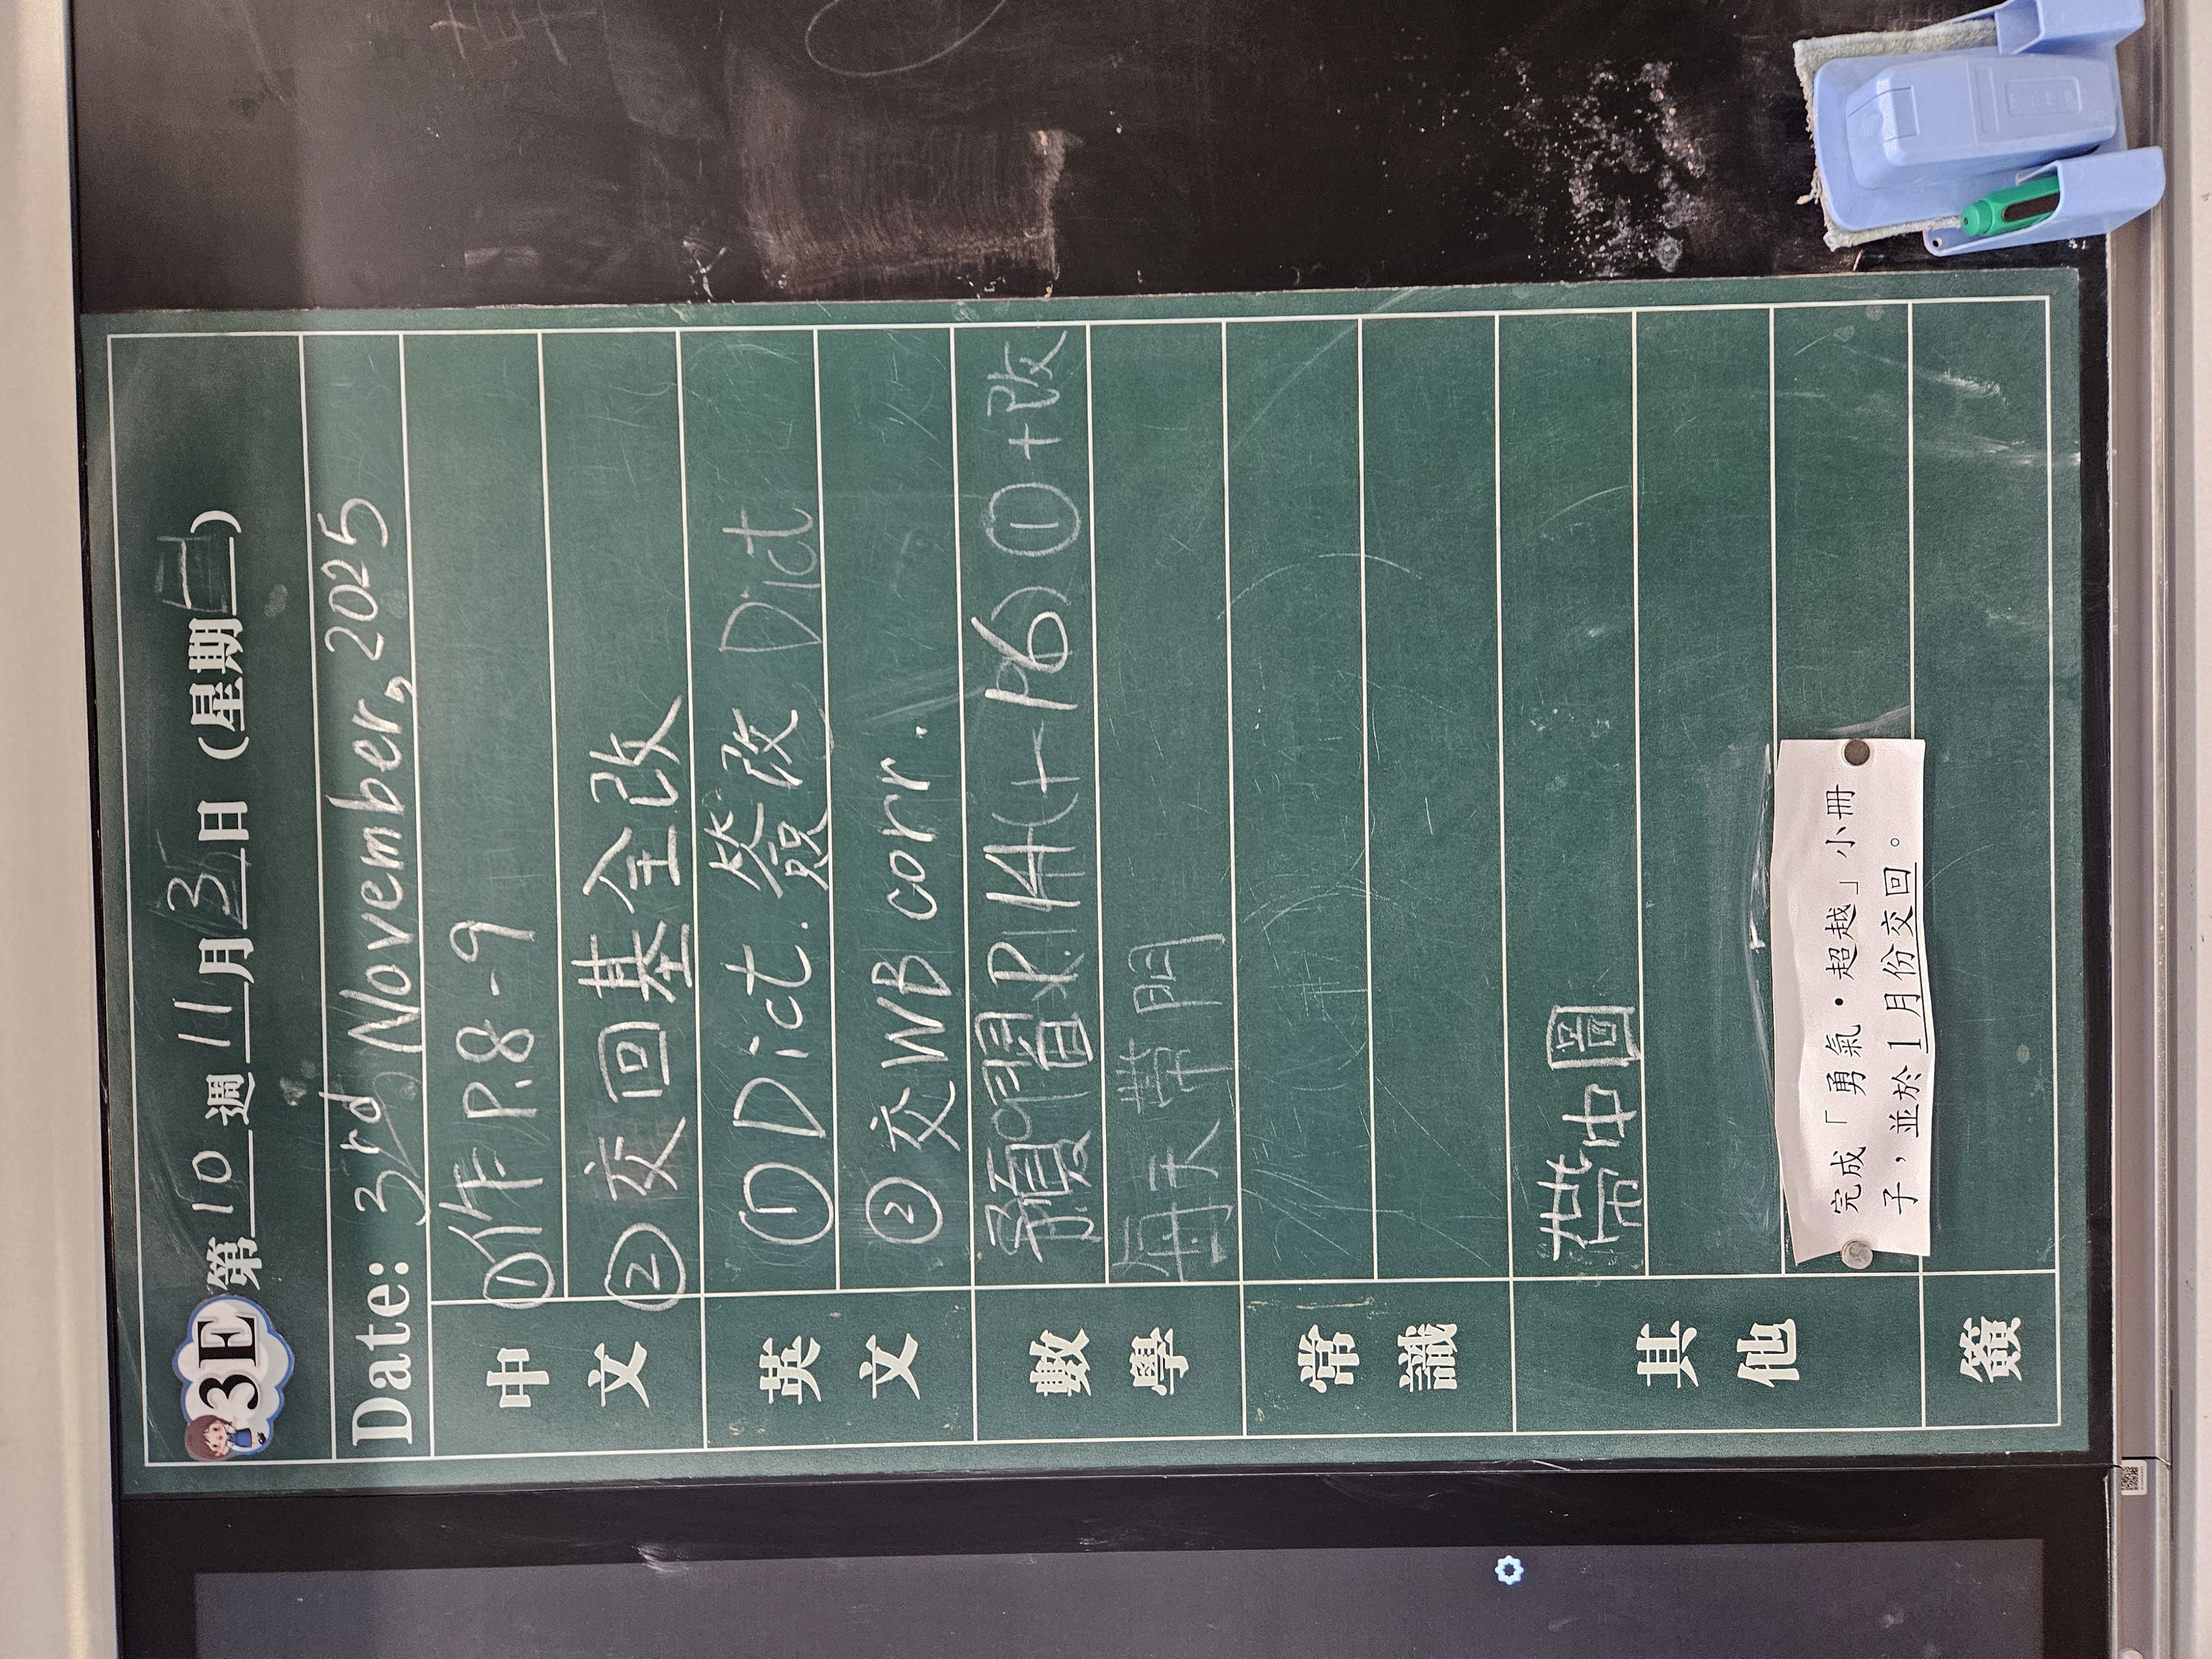 3E 第 10 週 11 月 3 日 (星期一)
Date: 3rd November, 2025
中文
①作P.8-9
②交回基全改
英文
①Dict. 簽改 Dict
②交WB corr.
數學
預習P.14(+P6) ①+改
每天帶
常識
其他
帶中圖
完成「勇氣•超越」小冊
子，並於1月份交回。
簽